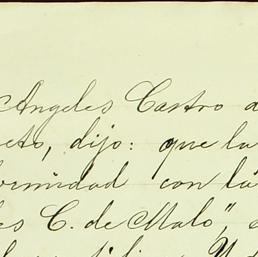 Angeles Castro d
eto, dijo: que la
ormidad con la
es C. de Malo", a